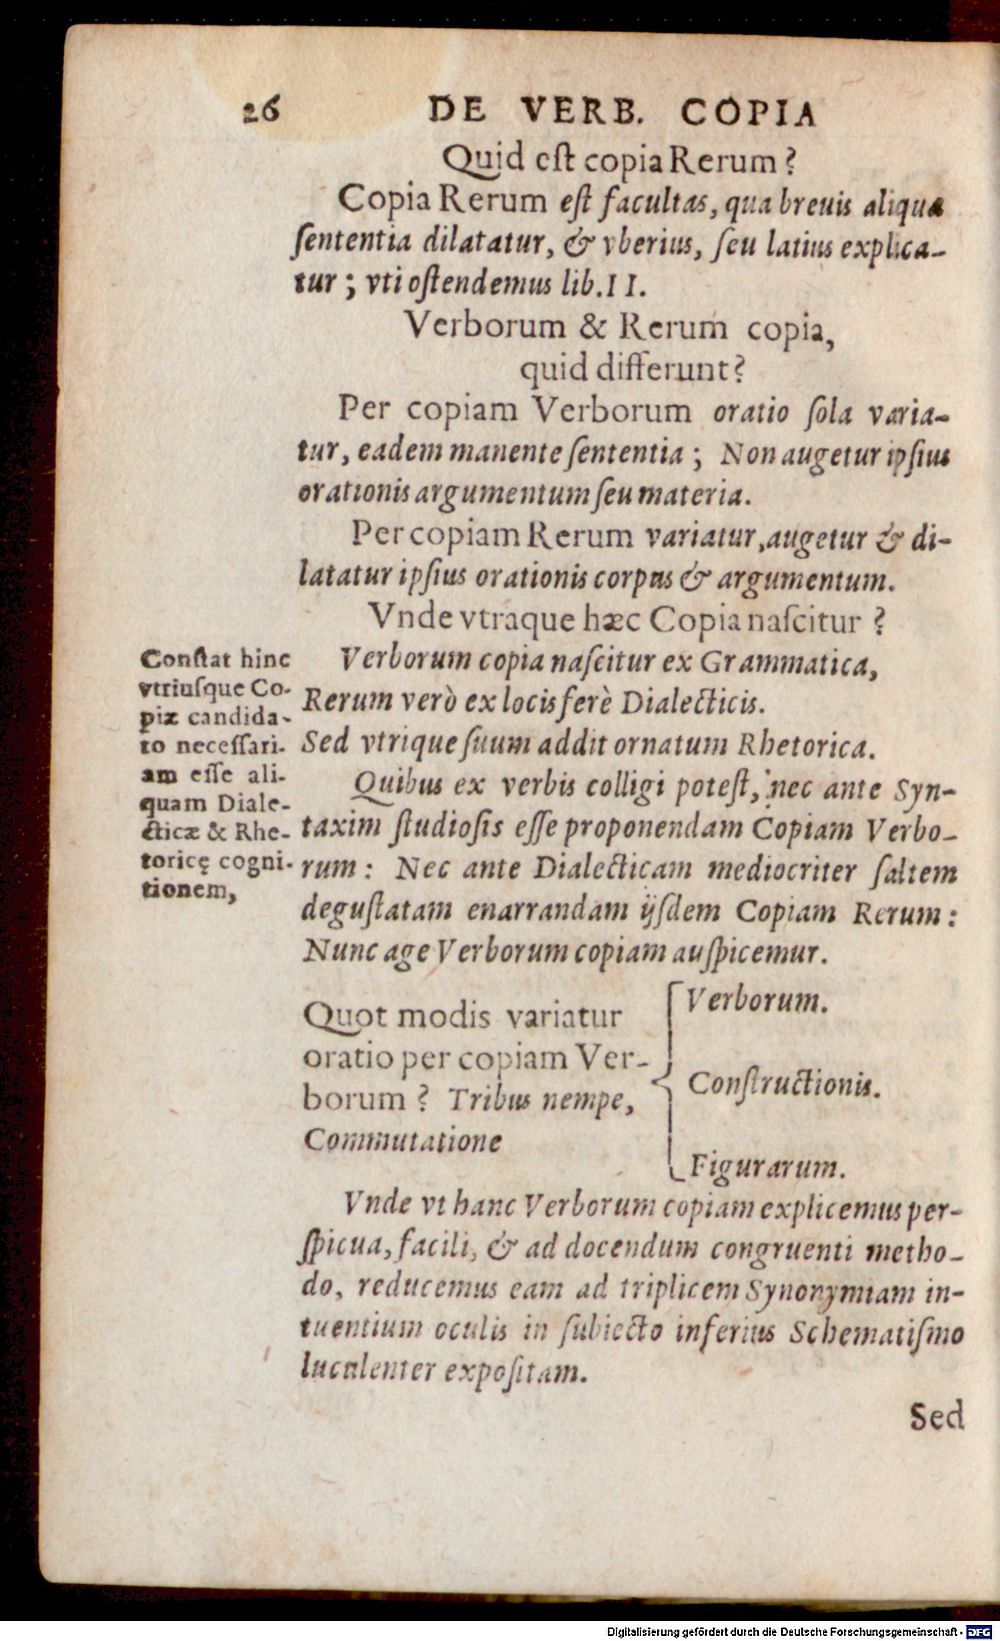 26 DE VERB. COPIA
Quid est copia Rerum?
Copia Rerum est facultas, qua breuis aliqua
sententia dilatatur, & vberius, seu latius explica-
tur; vti ostendemus lib. II.
Verborum & Rerum copia,
quid differunt?
Per copiam Verborum oratio sola varia-
tur, eadem manente sententia; Non augetur ipsius
orationis argumentum seu materia.
Per copiam Rerum variatur, augetur & di-
latatur ipsius orationis corpus & argumentum.
Vnde vtraque hæc Copia nascitur?
Verborum copia nascitur ex Grammatica,
Rerum verò ex locis ferè Dialecticis.
Sed vtrique suum addit ornatum Rhetorica.
Constat hinc
vtriusque Co-
piæ candida-
to necessari-
am esse ali-
quam Diale-
cticæ & Rhe-
toricę cogni-
tionem,
Quibus ex verbis colligi potest, nec ante Syn-
taxim studiosis esse proponendam Copiam Verbo-
rum: Nec ante Dialecticam mediocriter saltem
degustatam enarrandam ijsdem Copiam Rerum:
Nunc age Verborum copiam auspicemur.
Quot modis variatur
oratio per copiam Ver-
borum? Tribus nempe,
Commutatione
Verborum.
Constructionis.
Figurarum.
Vnde vt hanc Verborum copiam explicemus per-
spicua, facili, & ad docendum congruenti metho-
do, reducemus eam ad triplicem Synonymiam in-
tuentium oculis in subiecto inferius Schematismo
luculenter expositam.
Sed
Digitalisierung gefördert durch die Deutsche Forschungsgemeinschaft - DFG